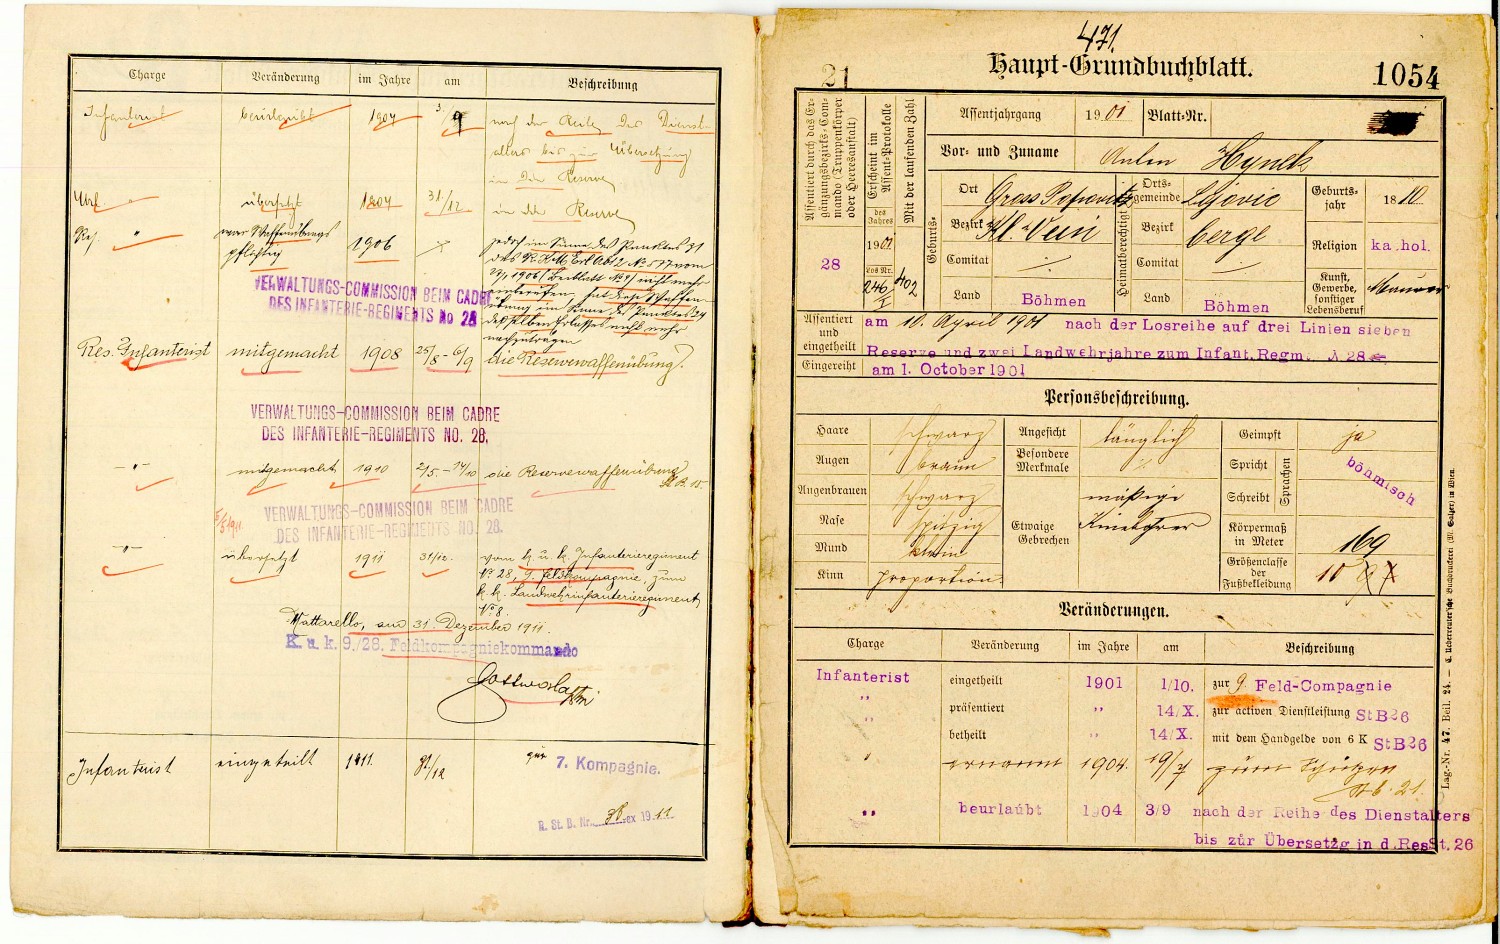 Charge Veränderung im Jahre am Beschreibung
Infanterist beurlaubt 1904 3/9 nach der Reihe des Dienst-
alters bis zur Übersetzung
in die Reserve
Url. " übersetzt 1904 31/12 in die Reserve
Res. " war Waffenübungs
pflichtig 1906 jedoch im Sinne des Punktes 31
nicht mehr
VERWALTUNGS-COMMISSION BEIM CADRE
DES INFANTERIE-REGIMENTS No 28
Res. Infanterist mitgemacht 1908 25/5-6/9 die Reservewaffenübung.
VERWALTUNGS-COMMISSION BEIM CADRE
DES INFANTERIE-REGIMENTS NO. 28.
-"- mitgemacht 1910 die Reservewaffenübung
St. B. 15.
VERWALTUNGS-COMMISSION BEIM CADRE
DES INFANTERIE-REGIMENTS NO. 28.
-"- übersetzt 1911 31/12. vom k. u. k. Infanterieregiment
Nr 28, 9. Feldkompagnie, zum
k. k. Landwehrinfanterieregiment
No 8.
Mattarello, am 31. Dezember 1911.
K. u. k. 9./28. Feldkompagniekommando
Infanterist eingeteilt 1911. 31/12 zur 7. Kompagnie.
R. St. B. Nr. ex 1911
471.
21 Haupt-Grundbuchblatt. 1054
Assentirt durch das Er-
gänzungsbezirks-Com-
mando (Truppenkörper
oder Heeresanstalt)
28
Erscheint im
Assent-Protokolle
des
Jahres
1901
Los Nr.
246/I
Mit der laufenden Zahl
402
Assentjahrgang 1901 Blatt-Nr.
Vor- und Zuname Anton Hynek
Geburts-
Ort Gross Popowitz
Bezirk
Comitat ./.
Land Böhmen
Heimatberechtigt
Orts-
gemeinde Lojovic
Bezirk
Comitat
Land Böhmen
Geburts-
jahr 1880
Religion kathol.
Kunst,
Gewerbe,
sonstiger
Lebensberuf Maurer
Assentiert
und
eingetheilt
am 10. April 1901 nach der Losreihe auf drei Linien sieben
Reserve und zwei Landwehrjahre zum Infant. Regm. N 28
Eingereiht am 1. October 1901
Personsbeschreibung.
Haare schwarz
Augen braun
Augenbrauen schwarz
Nase spitzig
Mund klein
Kinn proportion.
Angesicht länglich
Besondere
Merkmale ./.
Etwaige
Gebrechen mäßige
Geimpft ja
Spricht
Schreibt
Sprachen
böhmisch
Körpermaß
in Meter 169
Größenclasse
der
Fußbekleidung 10
Veränderungen.
Charge Veränderung im Jahre am Beschreibung
Infanterist eingetheilt 1901 1/10. zur 9. Feld-Compagnie
" präsentiert " 14/X. zur activen Dienstleistung StB26
" betheilt " 14/X. mit dem Handgelde von 6 K StB26
" ernannt 1904. 19/7 zum Schützen
St. b. 21.
" beurlaubt 1904 3/9 nach der Reihe des Dienstalters
bis zur Übersetzg in d. Res St. 26
Lag.-Nr. 47. Beil. 24. — C. Ueberreuter'sche Buchdruckerei (M. Salzer) in Wien.